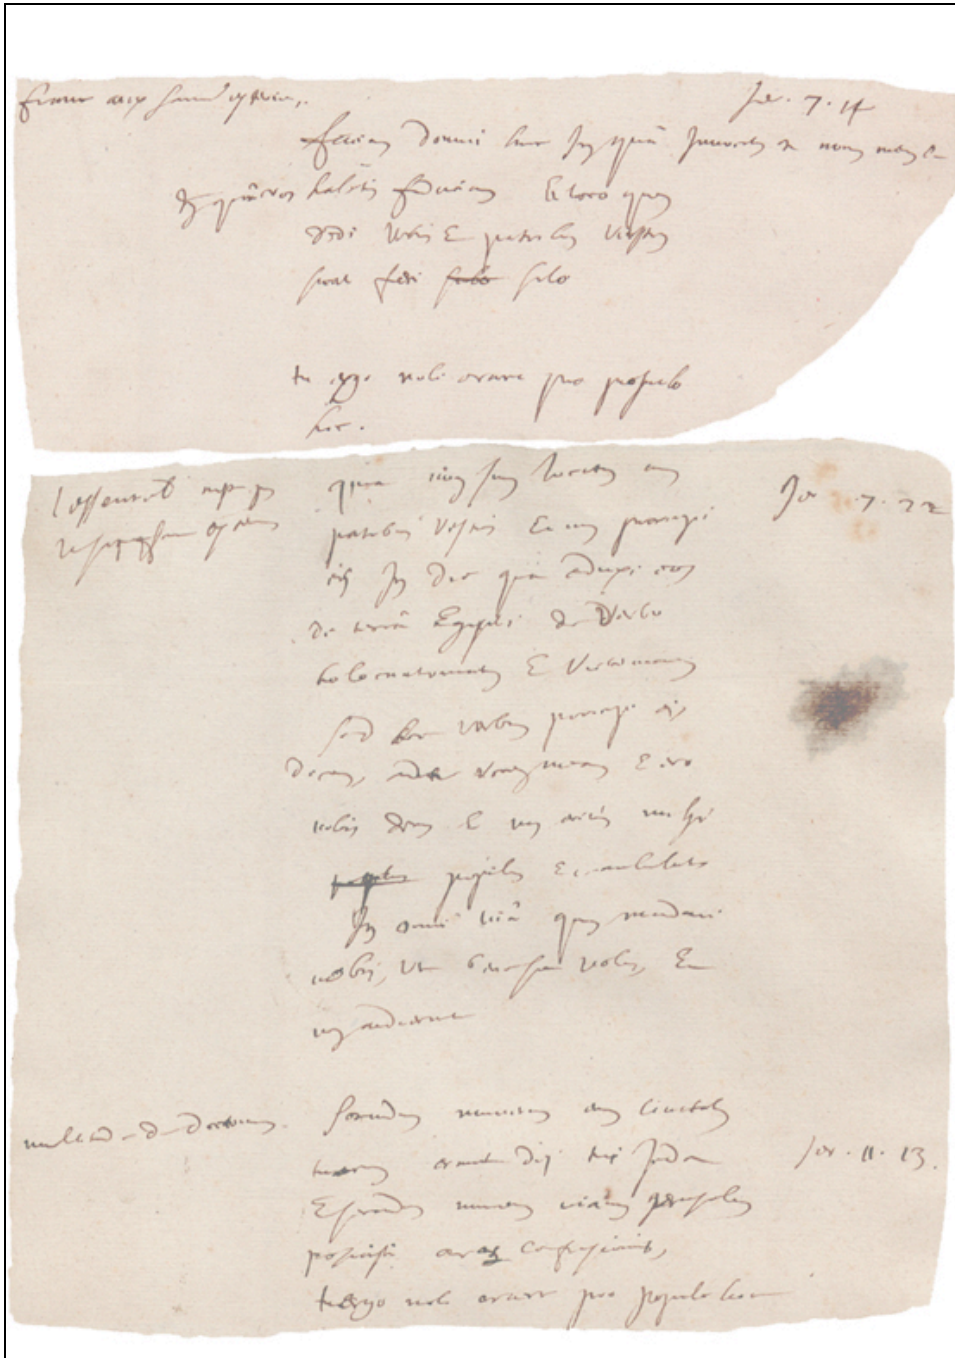 Jer. 7. 14
faciam domui huic In quâ Invocatum est nomen meum &
In quâ vos habetis fiduciam Et loco quem
dedi vobis & patribus vestris
sicut feci silo
tu ergo noli orare pro populo
hoc.
quia non sum locutus cum Jer. 7. 22
patribus vestris & non præcepi
eis In die quâ aduxi eos
de terrâ Egypti de Verbo
holocautomatum & Victimarum
sed hoc verbum præcepi eis
dicens, audite vocem meam & ero
vobis deus & vos eritis mihi
populus & ambulate
In omni viâ quam mandavi
vobis, ut bene sit vobis, &
non audierunt
secundum numerum enim Civitatum
tuarum erant dii tui Juda Jer. 11. 13.
& secundum numerum viarum
posuisti aras Confusionis,
tu ergo noli orare pro populo hoc